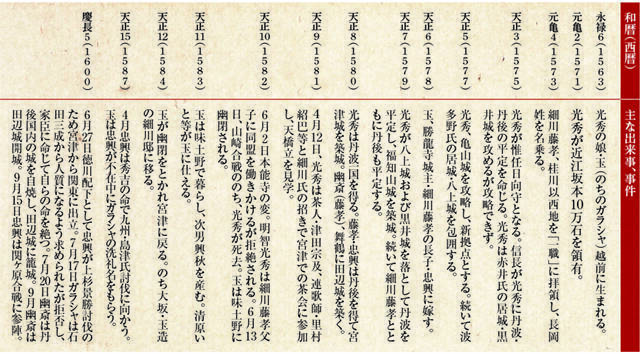 和暦（西暦）
主な出来事、事件
永禄6（1563）
光秀の娘・玉（のちのガラシャ）越前に生まれる。
元亀2（1571）
光秀が近江坂本10万石を領有。
元亀4（1573）
細川藤孝、桂川以西地を「一職」に拝領し、長岡
姓を名乗る。
天正3（1575）
光秀が惟任日向守となる。信長が光秀に丹波・
丹後の平定を命じる。光秀は赤井氏の居城・黒
井城を攻めるが攻略できず。
天正5（1577）
光秀、亀山城を攻略し、新拠点とする。続いて波
多野氏の居城・八上城を包囲する。
天正6（1578）
玉、勝龍寺城主・細川藤孝の長子・忠興に嫁す。
天正7（1579）
光秀が八上城および黒井城を落として丹波を
平定し、福知山城を築城。続いて細川藤孝とと
もに丹後も平定する。
天正8（1580）
光秀は丹波一国を得る。藤孝・忠興は丹後を得て宮
津城を築城。幽斎（藤孝）、舞鶴に田辺城を築く。
天正9（1581）
4月12日、光秀は茶人・津田宗及、連歌師・里村
紹巴等と細川氏の招きで宮津での茶会に参加
し、天橋立を見学。
天正10（1582）
6月2日本能寺の変。明智光秀は細川藤孝父
子に同盟を働きかけるが拒絶される。6月13
日、山崎合戦ののち、光秀が死去。玉は味土野に
幽閉される。
天正11（1583）
玉は味土野で暮らし、次男興秋を産む。清原い
と等が玉に仕える。
天正12（1584）
玉が幽閉をとかれ宮津に戻る。のち大坂・玉造
の細川邸に移る。
天正15（1587）
4月忠興は秀吉の命で九州・島津氏討伐に向かう。
玉は忠興が不在中にガラシャの洗礼名をもらう。
慶長5（1600）
6月27日徳川配下として忠興が上杉景勝討伐の
ため宮津から関東に出立。7月17日ガラシャは石
田三成から人質になるよう求められたが拒否し、
家臣に命じて自らの命を絶つ。7月20日幽斎は丹
後国内の城を自焼し、田辺城に籠城。9月幽斎は
田辺城開城。9月15日忠興は関ヶ原合戦に参陣。